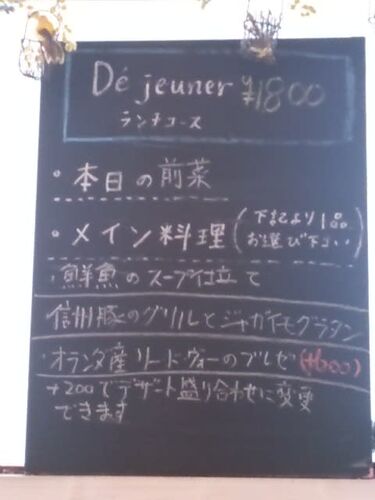 Déjeuner ¥1800
ランチコース
・本日の前菜
・メイン料理(下記より1品
お選び下さい)
・鮮魚のスープ仕立て
信州豚のグリルとジャガイモグラタン
・オランダ産リードヴォーのブレゼ(+600)
+200でデザート盛り合わせに変更
できます